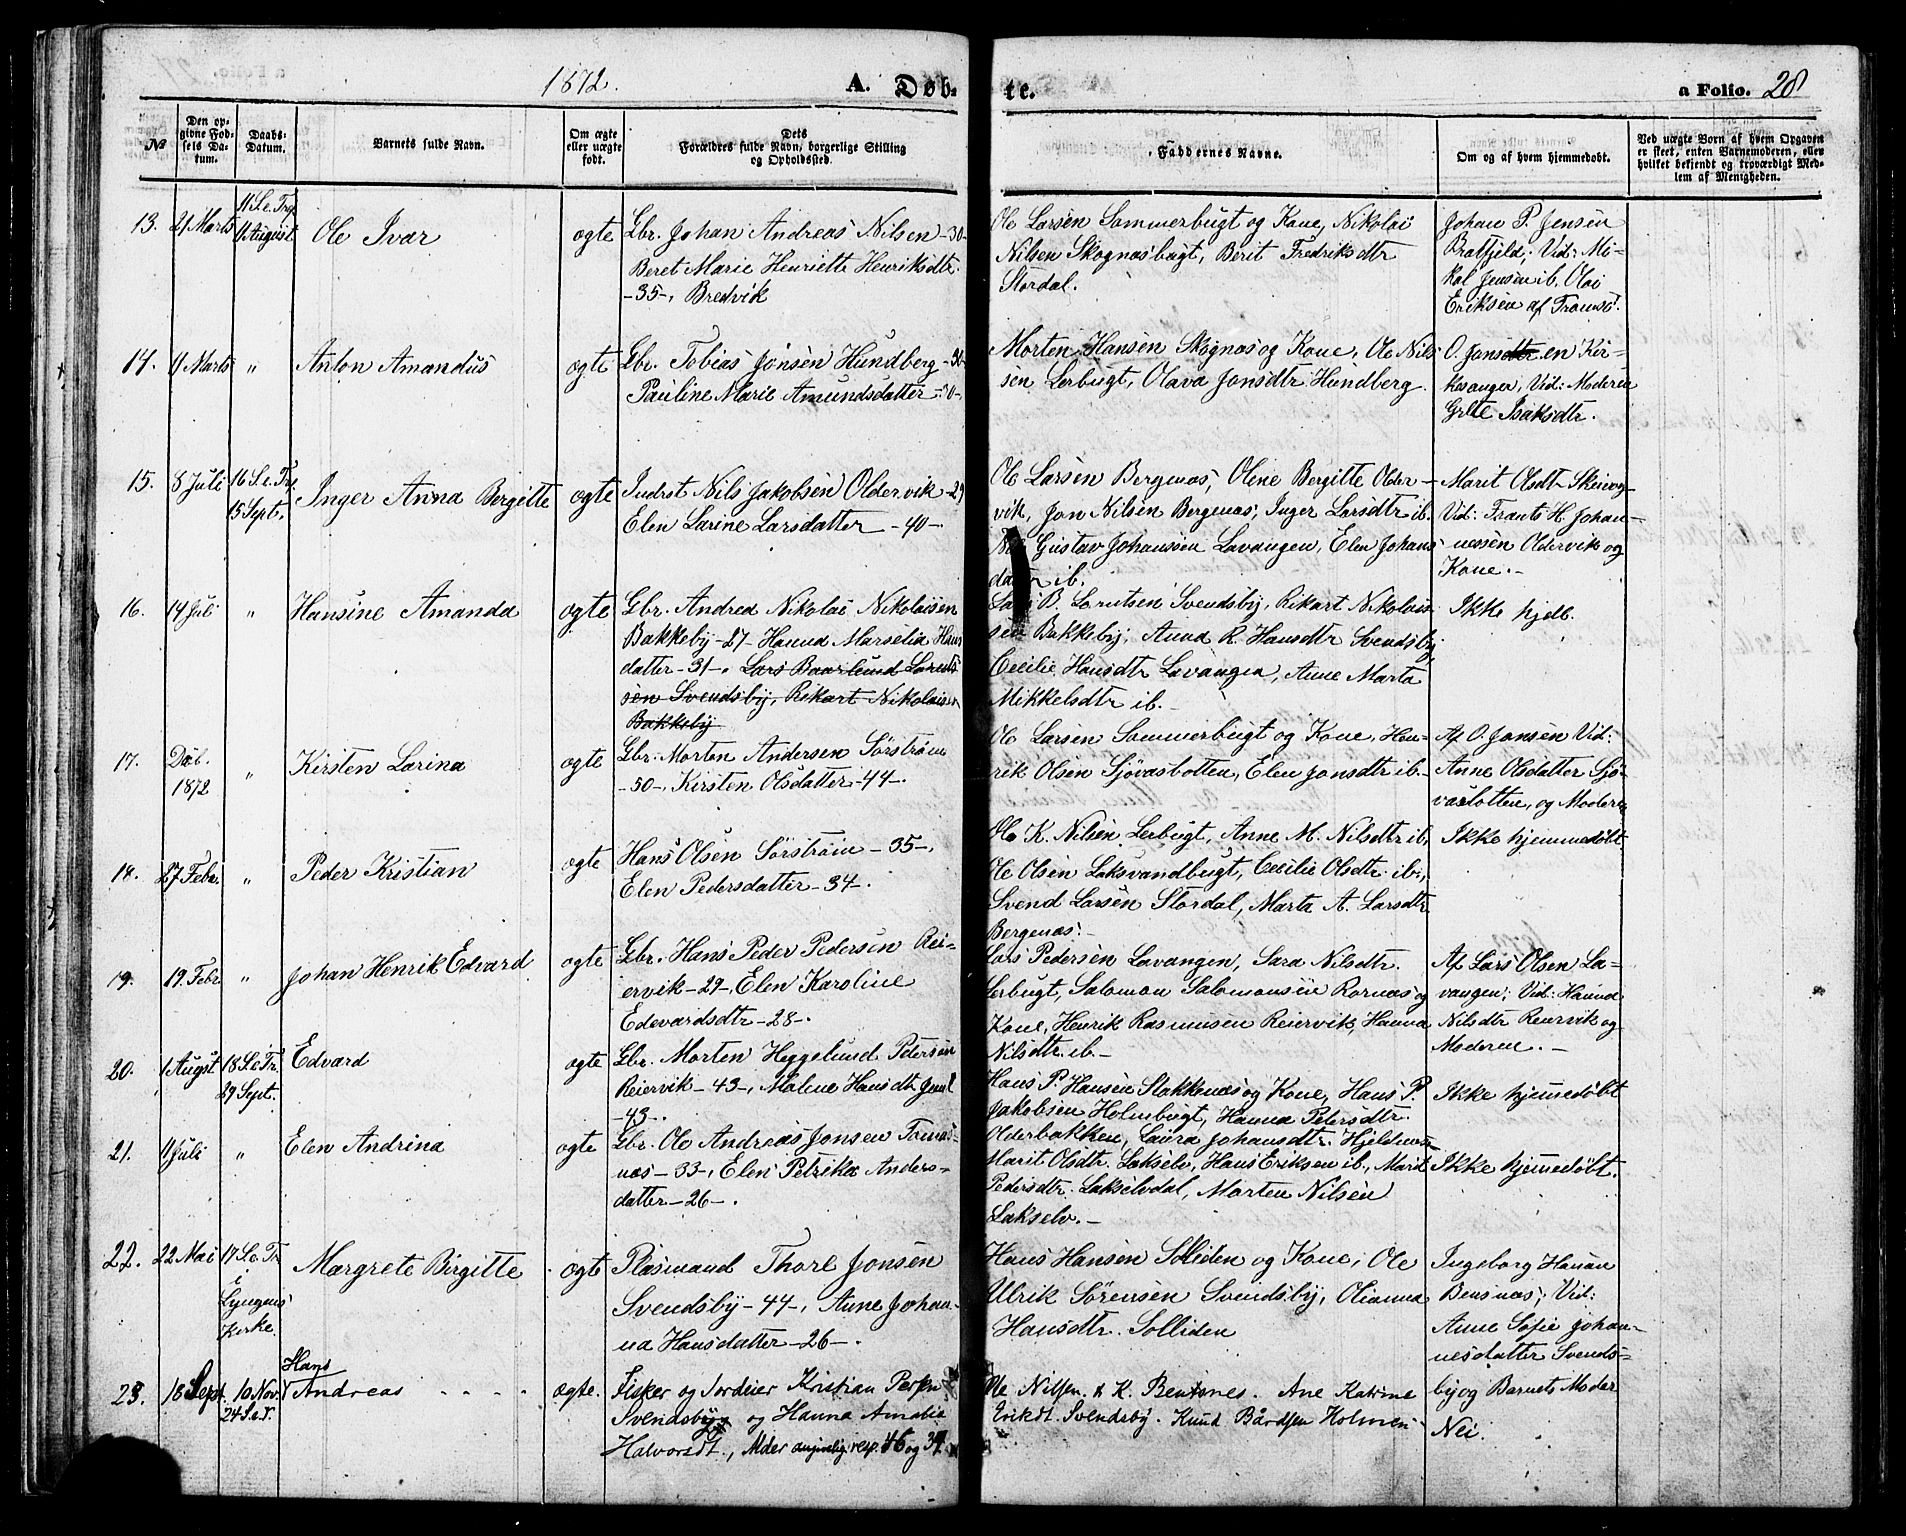 1872. A. Døb- te. a Folio. 28
№
Den op-
givne Fød-
sels Da-
tum.
Daabs-
Datum.
Barnets fulde Navn.
Om ægte
eller uægte
født.
Dets
Forældres fulde Navn, borgerlige Stilling
og Opholdssted.
Faddernes Navne.
Om og af hvem hjemmedøbt.
Ved uægte Børn af hvem Opgaven
er skeet, enten Barnemoderen, eller
hvilket bekjendt og troværdigt Med-
lem af Menigheden.
13. 21 Marts
11 S. e. Tref.
11 August
Ole Ivar
ægte
Gbr. Johan Andreas Nilsen -30-
Beret Marie Henriette Henriksdtr.
-35-, Bredvik
Ole Larsen Sommerbugt og Kone, Nikolai
Nilsen Skognæsbugt, Berit Fredriksdtr
Stordal.
Johan P. Jensen
Bratfjeld; Vid: Mi-
kal Jensen ib. Olai
Eriksen af Tromsø.
14. 11 Marts " Anton Amandus
ægte
Gbr. Tobias Jonsen Hundberg -30-
Pauline Marie Amundsdatter -30-
Morten Hansen Skognæs og Kone, Ole Nil-
sen Lerbugt, Olava Jonsdtr Hundberg.
O. Jansdtr en Kir-
kesanger, Vid: Moderen
Grete Isaksdtr.
15. 8 Juli
16 S. e. Tr.
15 Sept.
Inger Anna Bergitte
ægte
Inderst Nils Jakobsen Oldervik -29
Elen Larine Larsdatter -40-
Ole Larsen Bergenæs, Oline Bergitte Older-
vik, Jon Nilsen Bergenæs, Inger Larsdtr ib.
Gustav Johansen Lavangen, Elen Johans-
datter ib.
Marit Olsdtr
Vid: Frants H. Johan-
nessen Oldervik og
Kone.-
16. 14 Juli " Hansine Amanda
ægte
Gbr. Andrea Nikolai Nikolaisen
Bakkeby -27- Hanna Marselia Hans
datter -31-, Lars Baarlund Larnts
sen Svendsby, Rikart Nikolaisen
Bakkeby
Lars B. Larntsen Svendsby, Rikart Nikolai-
sen Bakkeby, Anna R. Hansdtr Svendsby,
Cecilie Hansdtr Lavangen, Anne Marta
Mikkelsdtr ib.-
Ikke hjdb.
17. Deb.
1872
" Kirsten Larina
ægte
Gbr. Morten Andersen Sørstrøm
-50-, Kirsten Olsdatter -44-
Ole Larsen Sommerbugt og Kone, Hen-
rik Olsen Sjøvasbotten, Elen Jonsdtr ib.-
Af O. Jansen Vid:
Anne Olsdatter Sjø-
vasbotten, og Moderen
18. 27 Febr. " Peder Kristian
ægte
Hans Olsen Sørstrøm -35-,
Elen Pedersdatter -34-.
Ole K. Nilsen Lerbugt, Anne M. Nilsdtr ib,
Ole Olsen Laksvandbugt, Cecilie Olsdtr ib.,
Svend Larsen Stordal, Marta A. Larsdtr
Bergenæs.-
Ikke hjemmedøbt
19. 19. Febr " Johan Henrik Edvard
ægte
Gbr. Hans Peder Pedersen Rei-
ervik -29-, Elen Karoline
Edevardsdtr -28-.
Lars Pedersen Lavangen, Sara Nilsdtr.
Lerbugt, Salomon Salomonsen Rornæs og
Kone, Henrik Rasmusen Reiervik, Hanna
Nilsdtr. ib.-
Af Lars Olsen La-
vangen; Vid: Hanna
Nilsdtr Reiervik og
Moderen.-
20. 1 August
18 S. e. Tr.
29 Sept.
Edvard
ægte
Gbr. Morten Heggelund Petersen
Reiervik -43-, Malene Hansdtr
-43-.
Hans P. Hansen Stakkenæs og Kone, Hans P.
Jakobsen Holmbugt, Hanna Petersdtr.
Olderbakken, Laura Johansdtr. Hjeldnæs
Ikke hjemmedøbt
21. 11 Juli " Elen Andrina
ægte
Gbr. Ole Andreas Jonsen Tomas-
næs -33-, Elen Petrika Anders-
datter -26-.
Marit Olsdtr. Lakselv, Hans Eriksen ib., Marit
Pedersdtr. Lakselvdal, Morten Nilsen
Lakselv.-
Ikke hjemmedøbt.
22. 22 Mai
17 S. e. Tr.
i
Lyngens
Kirke.
Margrete Birgitte
ægte
Plasmand Thore Jonsen
Svendsby -44-, Anne Johan-
na Hansdatter -26-.
Hans Hansen Solliden og Kone, Ole
Ulrik Sørensen Svendsby, Olianna
Hansdtr. Solliden
Ingeborg Hanan
Bensnæs; Vid:
Anne Sofie Johan-
nesdatter Svends-
by og Barnets Moder
23. 18 Sept.
10 Nov.
24 S. e. T.
Hans
Andreas
ægte.
Fisker og Jordeier Kristian Persen
Svendsby og Hanna Amalie
Halvorsdt., Alder angivelig resp. 46 og 34.
Ole Nilsen & K. Bentsnes. Ane Katrine
Eriksdt. Svendsby. Knud Bårdsen Holmen
Nei.